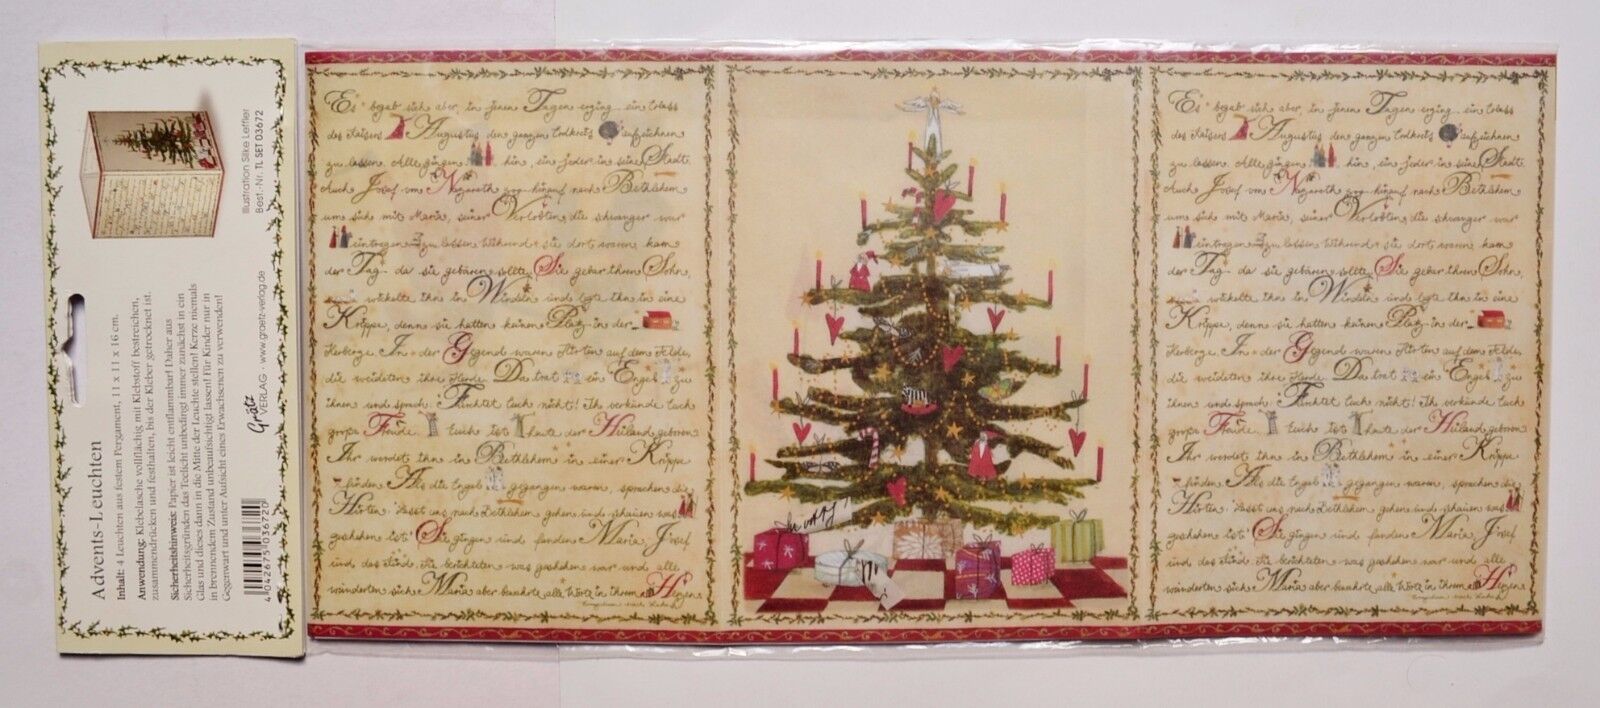 Advents-Leuchten
Inhalt: 4 Leuchten aus festem Pergament, 11 x 11 x 16 cm.
Anwendung: Klebelasche vollflächig mit Klebstoff bestreichen,
zusammendrücken und festhalten, bis der Kleber getrocknet ist.
Sicherheitshinweis: Papier ist leicht entflammbar! Daher aus
Sicherheitsgründen das Teelicht unbedingt immer zunächst in ein
Glas und dieses dann in die Mitte der Leuchte stellen! Kerze niemals
in brennendem Zustand unbeaufsichtigt lassen! Für Kinder nur in
Gegenwart und unter Aufsicht eines Erwachsenen zu verwenden!
Grätz
VERLAG · www.graetz-verlag.de
4 042675 036720
Illustration Silke Leffler
Best.-Nr. TL SET 03672
Es begab sich aber in jenen Tagen erging ein Erlass
des Kaisers Augustus den ganzen Erdkreis aufzeichnen
zu lassen. Alle gingen hin, ein jeder in seine Stadt.
Auch Josef von Nazareth zog hinauf nach Bethlehem
um sich mit Maria, seiner Verlobten, die schwanger war
eintragen zu lassen. Während sie dort waren kam
der Tag da sie gebären sollte. Sie gebar ihren Sohn,
wickelte ihn in Windeln und legte ihn in eine
Krippe, denn sie hatten keinen Platz in der
Herberge. In der Gegend waren Hirten auf dem Felde,
die weideten ihre Herde. Da trat ein Engel zu
ihnen und sprach: Fürchtet euch nicht! Ich verkünde euch
große Freude. Euch ist heute der Heiland geboren
Ihr werdet ihn in Bethlehem in einer Krippe
finden. Als die Engel gegangen waren, sprachen die
Hirten: Lasst uns nach Bethlehem gehen und schauen was
geschehen ist! Sie gingen und fanden Maria, Josef
und das Kind. Sie berichteten was geschehen war und alle
wunderten sich. Maria aber bewahrte alle Worte in ihrem Herzen.
Es begab sich aber in jenen Tagen erging ein Erlass
des Kaisers Augustus den ganzen Erdkreis aufzeichnen
zu lassen. Alle gingen hin, ein jeder in seine Stadt.
Auch Josef von Nazareth zog hinauf nach Bethlehem
um sich mit Maria, seiner Verlobten, die schwanger war
eintragen zu lassen. Während sie dort waren kam
der Tag da sie gebären sollte. Sie gebar ihren Sohn,
wickelte ihn in Windeln und legte ihn in eine
Krippe, denn sie hatten keinen Platz in der
Herberge. In der Gegend waren Hirten auf dem Felde,
die weideten ihre Herde. Da trat ein Engel zu
ihnen und sprach: Fürchtet euch nicht! Ich verkünde euch
große Freude. Euch ist heute der Heiland geboren
Ihr werdet ihn in Bethlehem in einer Krippe
finden. Als die Engel gegangen waren, sprachen die
Hirten: Lasst uns nach Bethlehem gehen und schauen was
geschehen ist! Sie gingen und fanden Maria, Josef
und das Kind. Sie berichteten was geschehen war und alle
wunderten sich. Maria aber bewahrte alle Worte in ihrem Herzen.